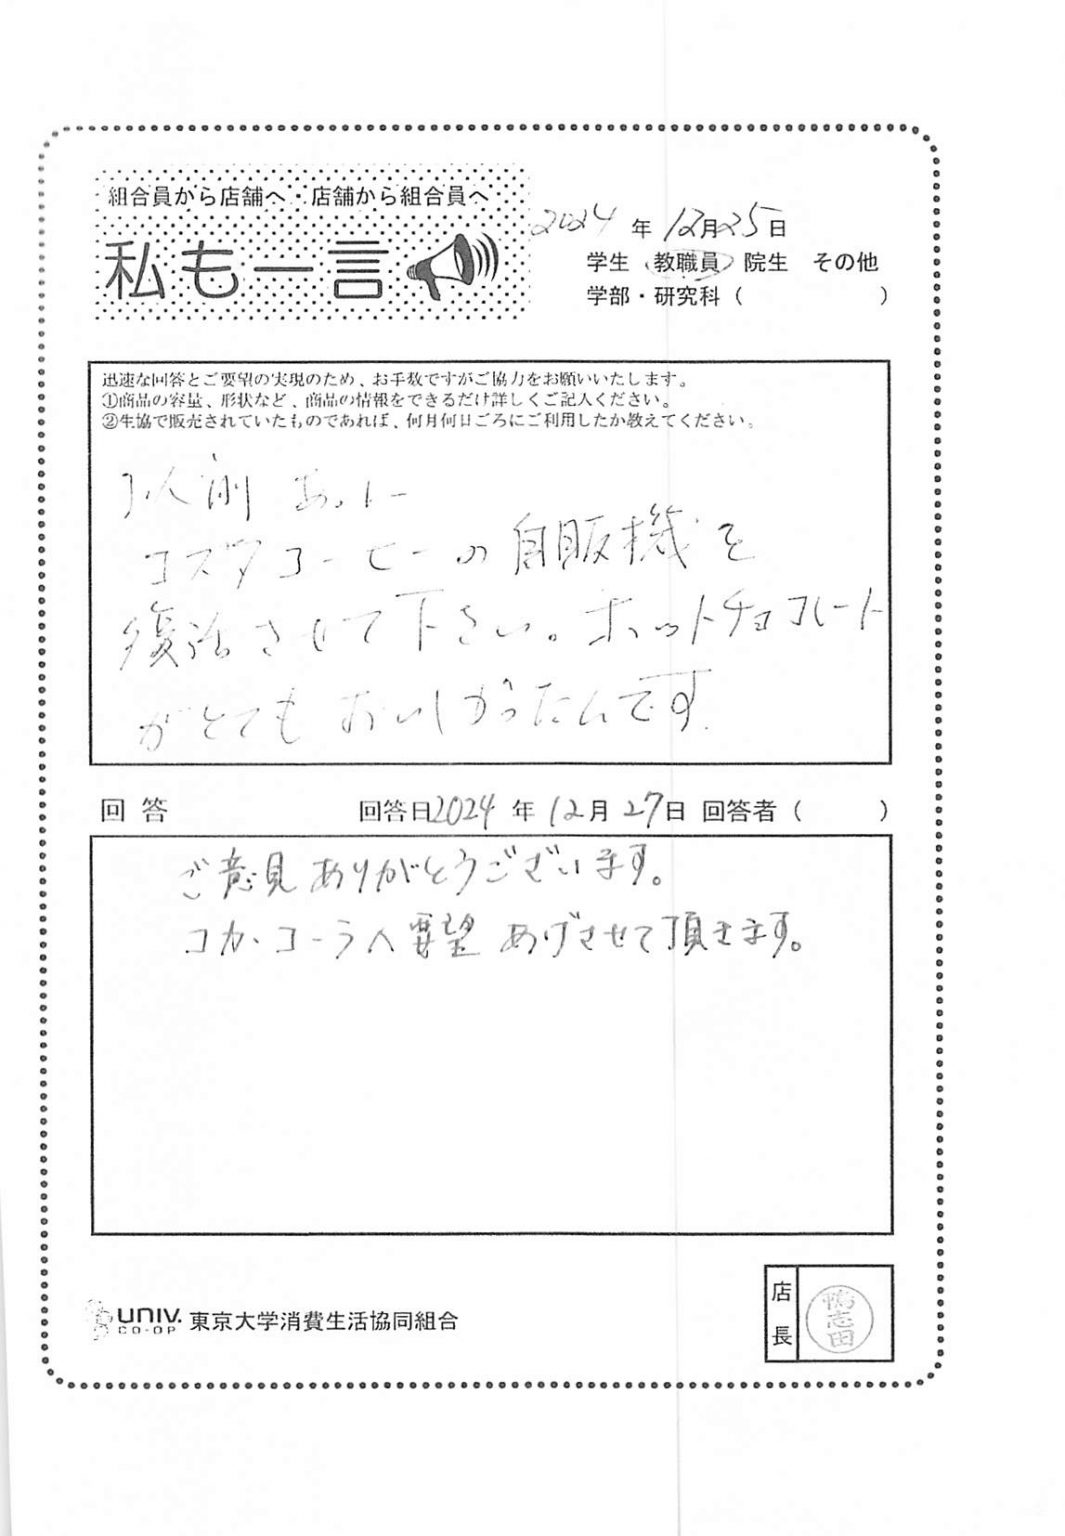 組合員から店舗へ・店舗から組合員へ
私も一言
2024年12月25日
学生 教職員 院生 その他
学部・研究科（ ）
迅速な回答とご要望の実現のため、お手数ですがご協力をお願いいたします。
①商品の容量、形状など、商品の情報をできるだけ詳しくご記入ください。
②生協で販売されていたものであれば、何月何日ごろにご利用したか教えてください。
以前あった
コスタコーヒーの自販機を
復活させて下さい。ホットチョコレート
がとてもおいしかったんです.
回答 回答日2024年12月27日 回答者（ ）
ご意見ありがとうございます。
コカ・コーラへ要望あげさせて頂きます。
UNIV.
CO-OP
東京大学消費生活協同組合
店長
鴨志田